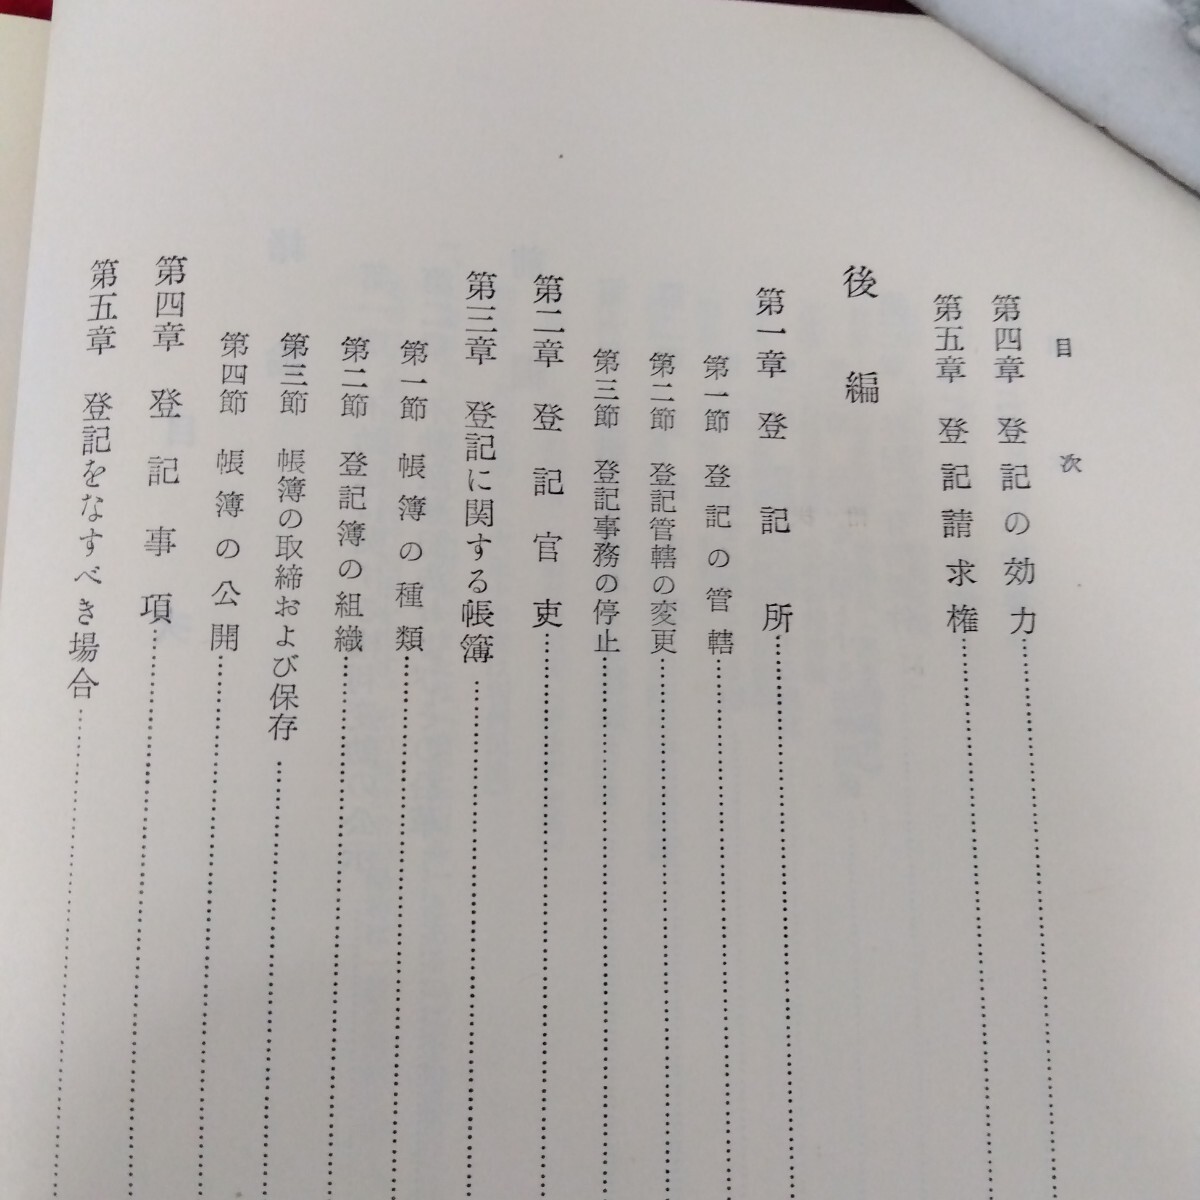 目次
第四章 登記の効力
第五章 登記請求権
後編
第一章 登記所
第一節 登記の管轄
第二節 登記管轄の変更
第三節 登記事務の停止
第二章 登記官吏
第三章 登記に関する帳簿
第一節 帳簿の種類
第二節 登記簿の組織
第三節 帳簿の取締および保存
第四節 帳簿の公開
第四章 登記事項
第五章 登記をなすべき場合